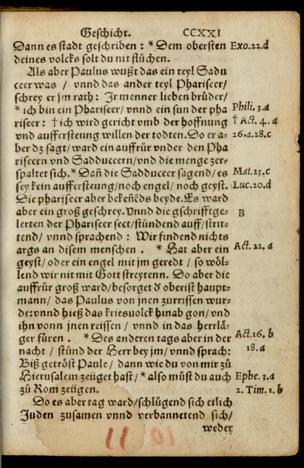 Geschicht. CCXXI
Dann es stadt geschriben : * Dem obersten Exo.22.d
deines volcks solt du nit flůchen.
Als aber Paulus wußt das ein teyl Sadu
ceer was / vnnd das ander teyl Phariseer/
schrey er jm rath: Ir menner lieben brůder/
* ich bin ein Phariseer/ vnnd ein sun der pha Phili.3.a
riseer: † ich wird gericht vmb der hoffnung † Act.4.a
vnd auffersteung willen der todten. Do er a= 26.a.28.c
ber dz sagt/ ward ein auffrůr vnder den Pha
riseern vnd Sadduceern/ vnd die menge zer=
spaltet sich. * Dañ die Sadduceer sagend/ es Mat.23.c
sey kein auffersteung/ noch engel/ noch geyst. Luc.20.d
Die phariseer aber bekeñēds beyde. Es ward
aber ein groß geschrey. Vnnd die gschrifftge= B
lerten der Phariseer sect/ stůndend auff/ strit=
tend/ vnnd sprachend : Wir findend nichts
args an disem menschen . * Hat aber ein Act.22.a
geyst/ oder ein engel mit jm geredt / so wöl=
lend wir nit mit Gott streytenn. Do aber die
auffrůr groß ward/ besorget d' oberist haupt=
mann/ das Paulus von jnen zurrissen wur=
de: vnnd hieß das kriesuolck hinab gon/ vnd
ihn vonn jnen reissen / vnnd in das herrlä=
ger fůren . * Des anderen tags aber in der Act.16.b
nacht / stůnd der Herr bey jm/ vnnd sprach: 18.a
Biß getröst Paule / dann wie du von mir zů
Hierusalem zeüget hast/ * also můst du auch Ephe.3.a
zů Rom zeügen. 2. Tim.1.b
Do es aber tag ward/ schlůgend sich etlich
Juden zusamen vnnd verbannetend sich/
weder